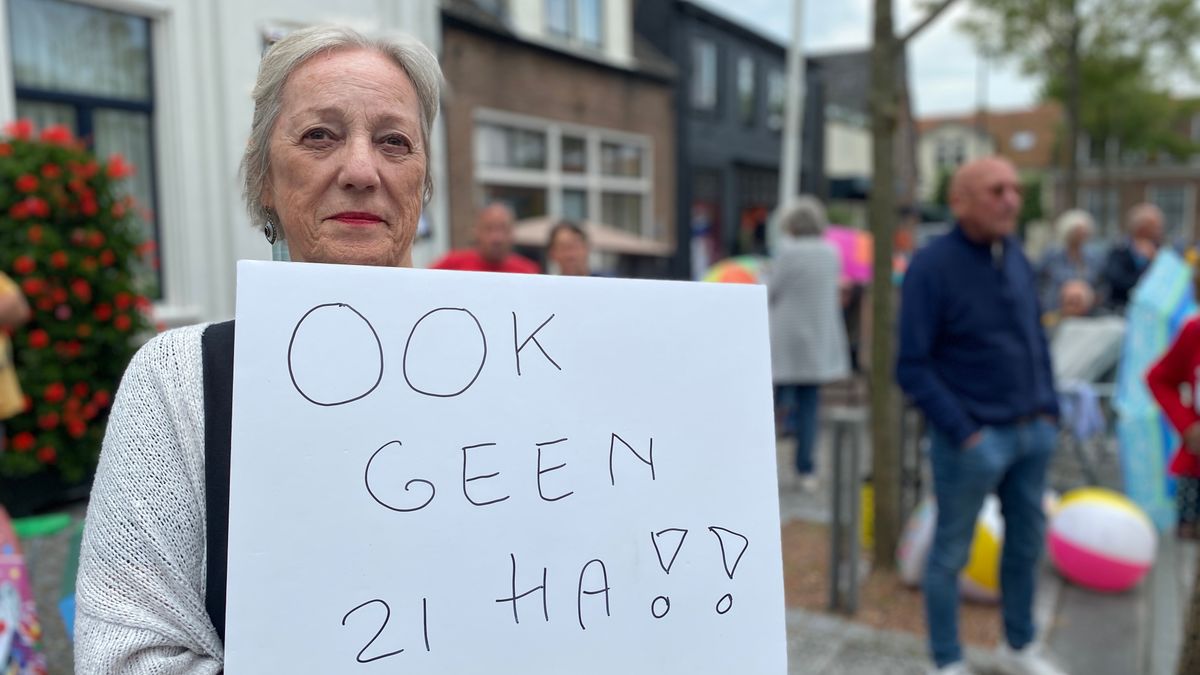 OOK
GEEN
21 HA!!